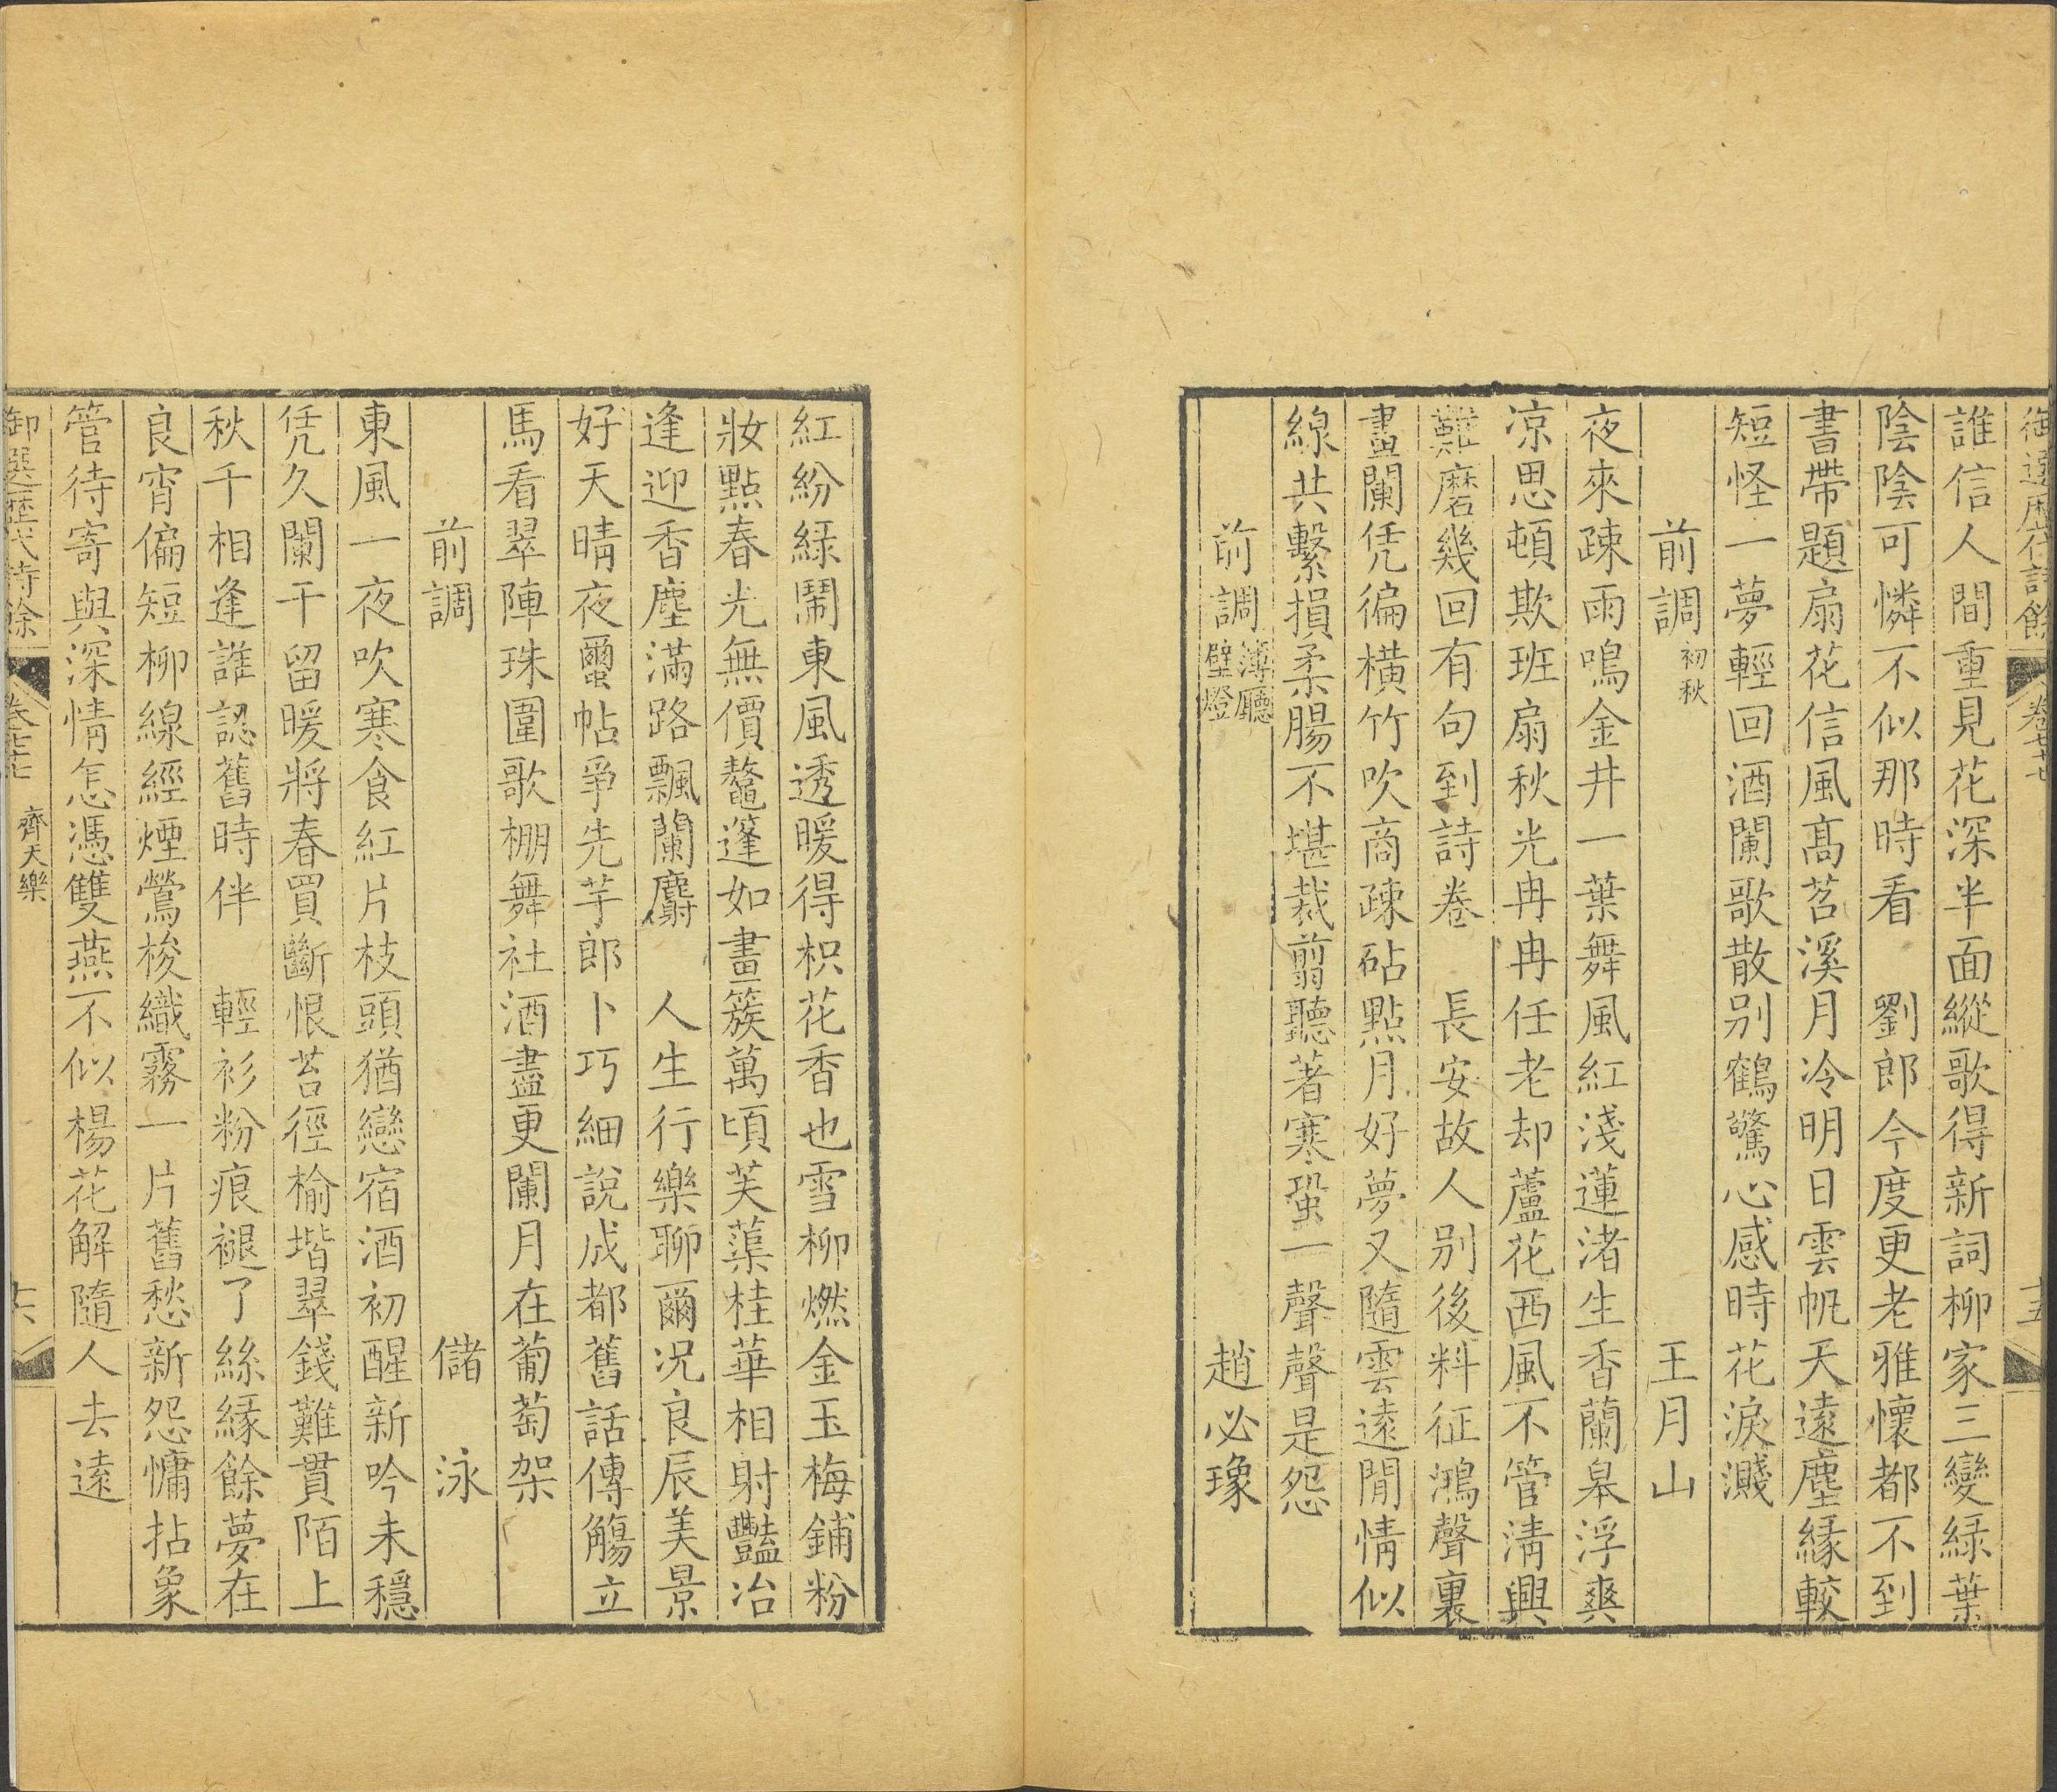 御選歷代詩餘 卷七十七 十五
誰信人間重見花深半面縱歌得新詞柳家三變綠葉
陰陰可憐不似那時看 劉郎今度更老雅懷都不到
書帶題扇花信風高苕溪月冷明日雲帆天遠塵緣較
短怪一夢輕回酒闌歌散别鶴驚心感時花淚濺
前調初秋 王月山
夜來疎雨鳴金井一葉舞風紅淺蓮渚生香蘭皋浮爽
凉思頓欺班扇秋光冉冉任老却蘆花西風不管淸興
難磨幾回有句到詩卷 長安故人别後料征鴻聲裏
畫闌凭徧橫竹吹商疎砧點月好夢又隨雲遠閒情似
線共繫損柔腸不堪裁剪聽著寒蛩一聲聲是怨
前調簿廳壁燈 趙必瑑
紅紛綠鬧東風透暖得枳花香也雪柳燃金玉梅鋪粉
妝點春光無價鼇篷如畫簇萬頃芙蕖桂華相射豔冶
逢迎香塵滿路飄蘭麝 人生行樂聊爾况良辰美景
好天晴夜䘉帖爭先芋郎卜巧細說成都舊話傳觴立
馬看翠陣珠圍歌棚舞社酒盡更闌月在葡萄架
前調 儲泳
東風一夜吹寒食紅片枝頭猶戀宿酒初醒新吟未穩
凭久闌干留暖將春買斷恨苔徑榆堦翠錢難貫陌上
秋千相逢誰認舊時伴 輕衫粉痕褪了絲緣餘夢在
良宵偏短柳線經煙鶯梭織霧一片舊愁新怨慵拈象
管待寄與深情怎憑雙燕不似楊花解隨人去遠
御選歷代詩餘 卷七十七 齊天樂 十六